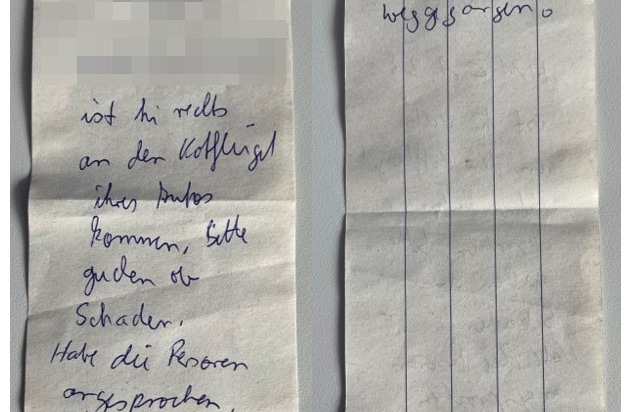 ist hi rechts
an den Kotflügel
ihres Autos
kommen, Bitte
gucken ob
Schaden.
Habe die Personen
angesprochen,
weggegangen.